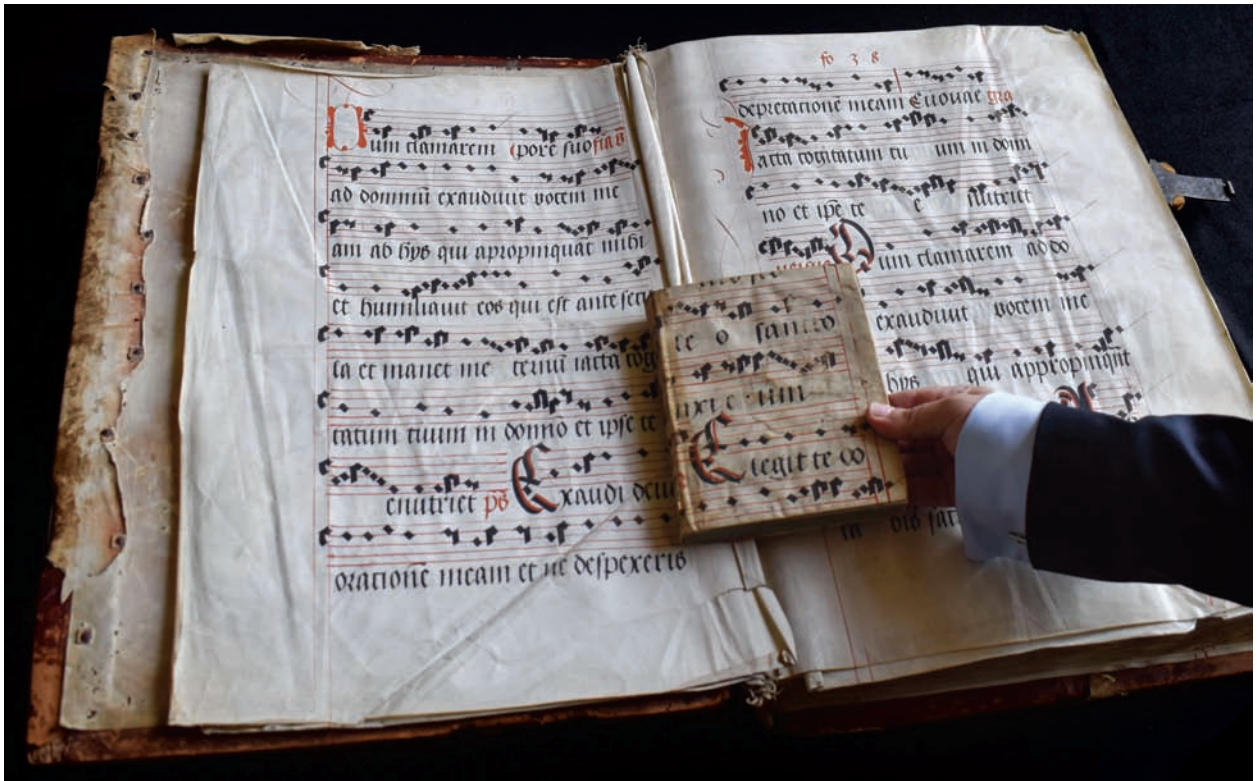 Dum clamarem (pore suo fia ß
ad dominũ exaudivit vocem me
am ab hijs qui apropinquãt mihi
et humiliavit eos qui est ante secu
la et manet me ternũ iacta cog
tatum tuum in domño et ipse te
enutriet pß Exaudi deus
orationẽ meam et ne despexeris
fo 38
depretationẽ meam Euouae gra
Iacta cogitatum tu um in domi
no et ip̃e te e
Dum clamarem ad do
exaudivit vocem me
hijs qui appropinqũt
te o
Elegit te do